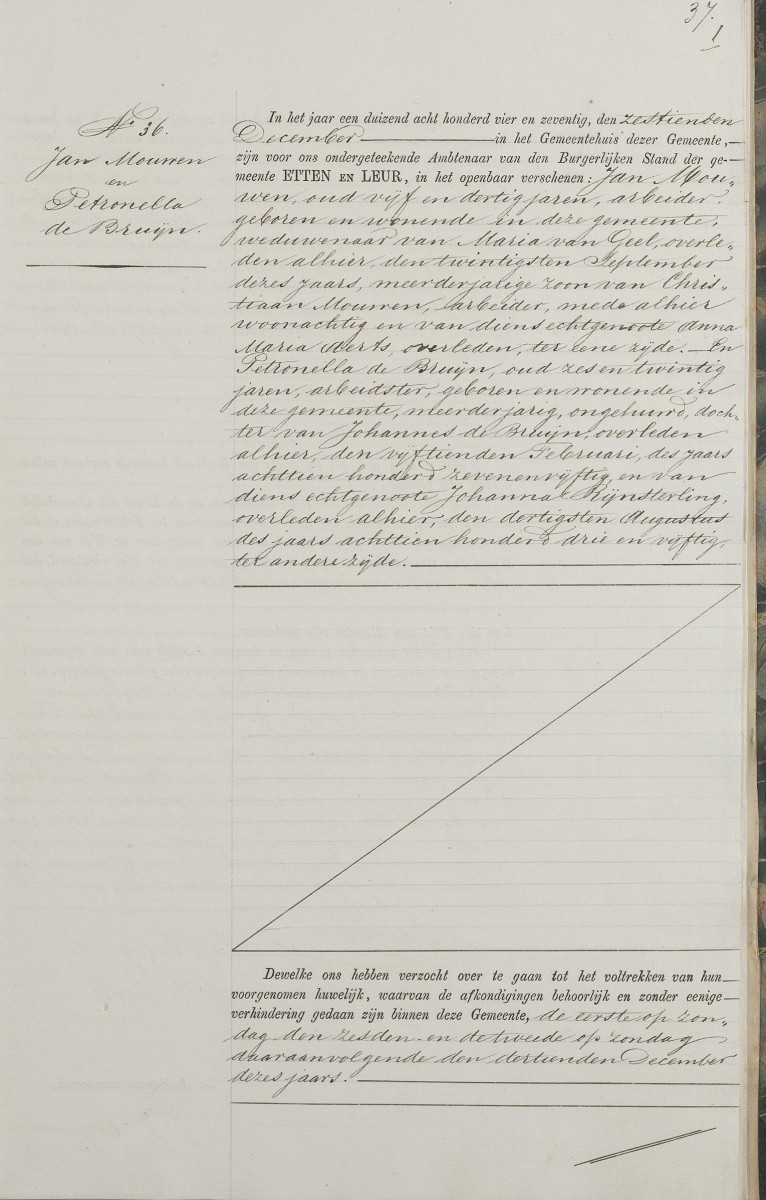 37.
1
No 36.
Jan Mouwen
en
Petronella
de Bruijn.
In het jaar een duizend acht honderd vier en zeventig, den zestienden
December in het Gemeentehuis dezer Gemeente,
zijn voor ons ondergeteekende Ambtenaar van den Burgerlijken Stand der ge-
meente ETTEN EN LEUR, in het openbaar verschenen: Jan Mou-
wen, oud vijf en dertig jaren, arbeider,
geboren en wonende in deze gemeente,
weduwenaar van Maria van Geel, overle-
den alhier, den twintigsten September
dezes jaars, meerderjarige zoon van Chris-
tiaan Mouwen, arbeider, mede alhier
woonachtig en van diens echtgenoote Anna
Maria Aerts, overleden, ter eene zijde. En
Petronella de Bruijn, oud zes en twintig
jaren, arbeidster, geboren en wonende in
deze gemeente, meerderjarig, ongehuwd, doch-
ter van Johannes de Bruijn, overleden
alhier, den vijftienden Februari, des jaars
achttien honderd zevenenvijftig, en van
diens echtgenoote Johanna Rijnsterling,
overleden alhier, den dertigsten Augustus
des jaars achttien honderd drie en vijftig,
ter andere zijde.
Dewelke ons hebben verzocht over te gaan tot het voltrekken van hun
voorgenomen huwelijk, waarvan de afkondigingen behoorlijk en zonder eenige
verhindering gedaan zijn binnen deze Gemeente, de eerste op zon-
dag den zesden en de tweede op zondag
daaraanvolgende den dertienden December
dezes jaars.